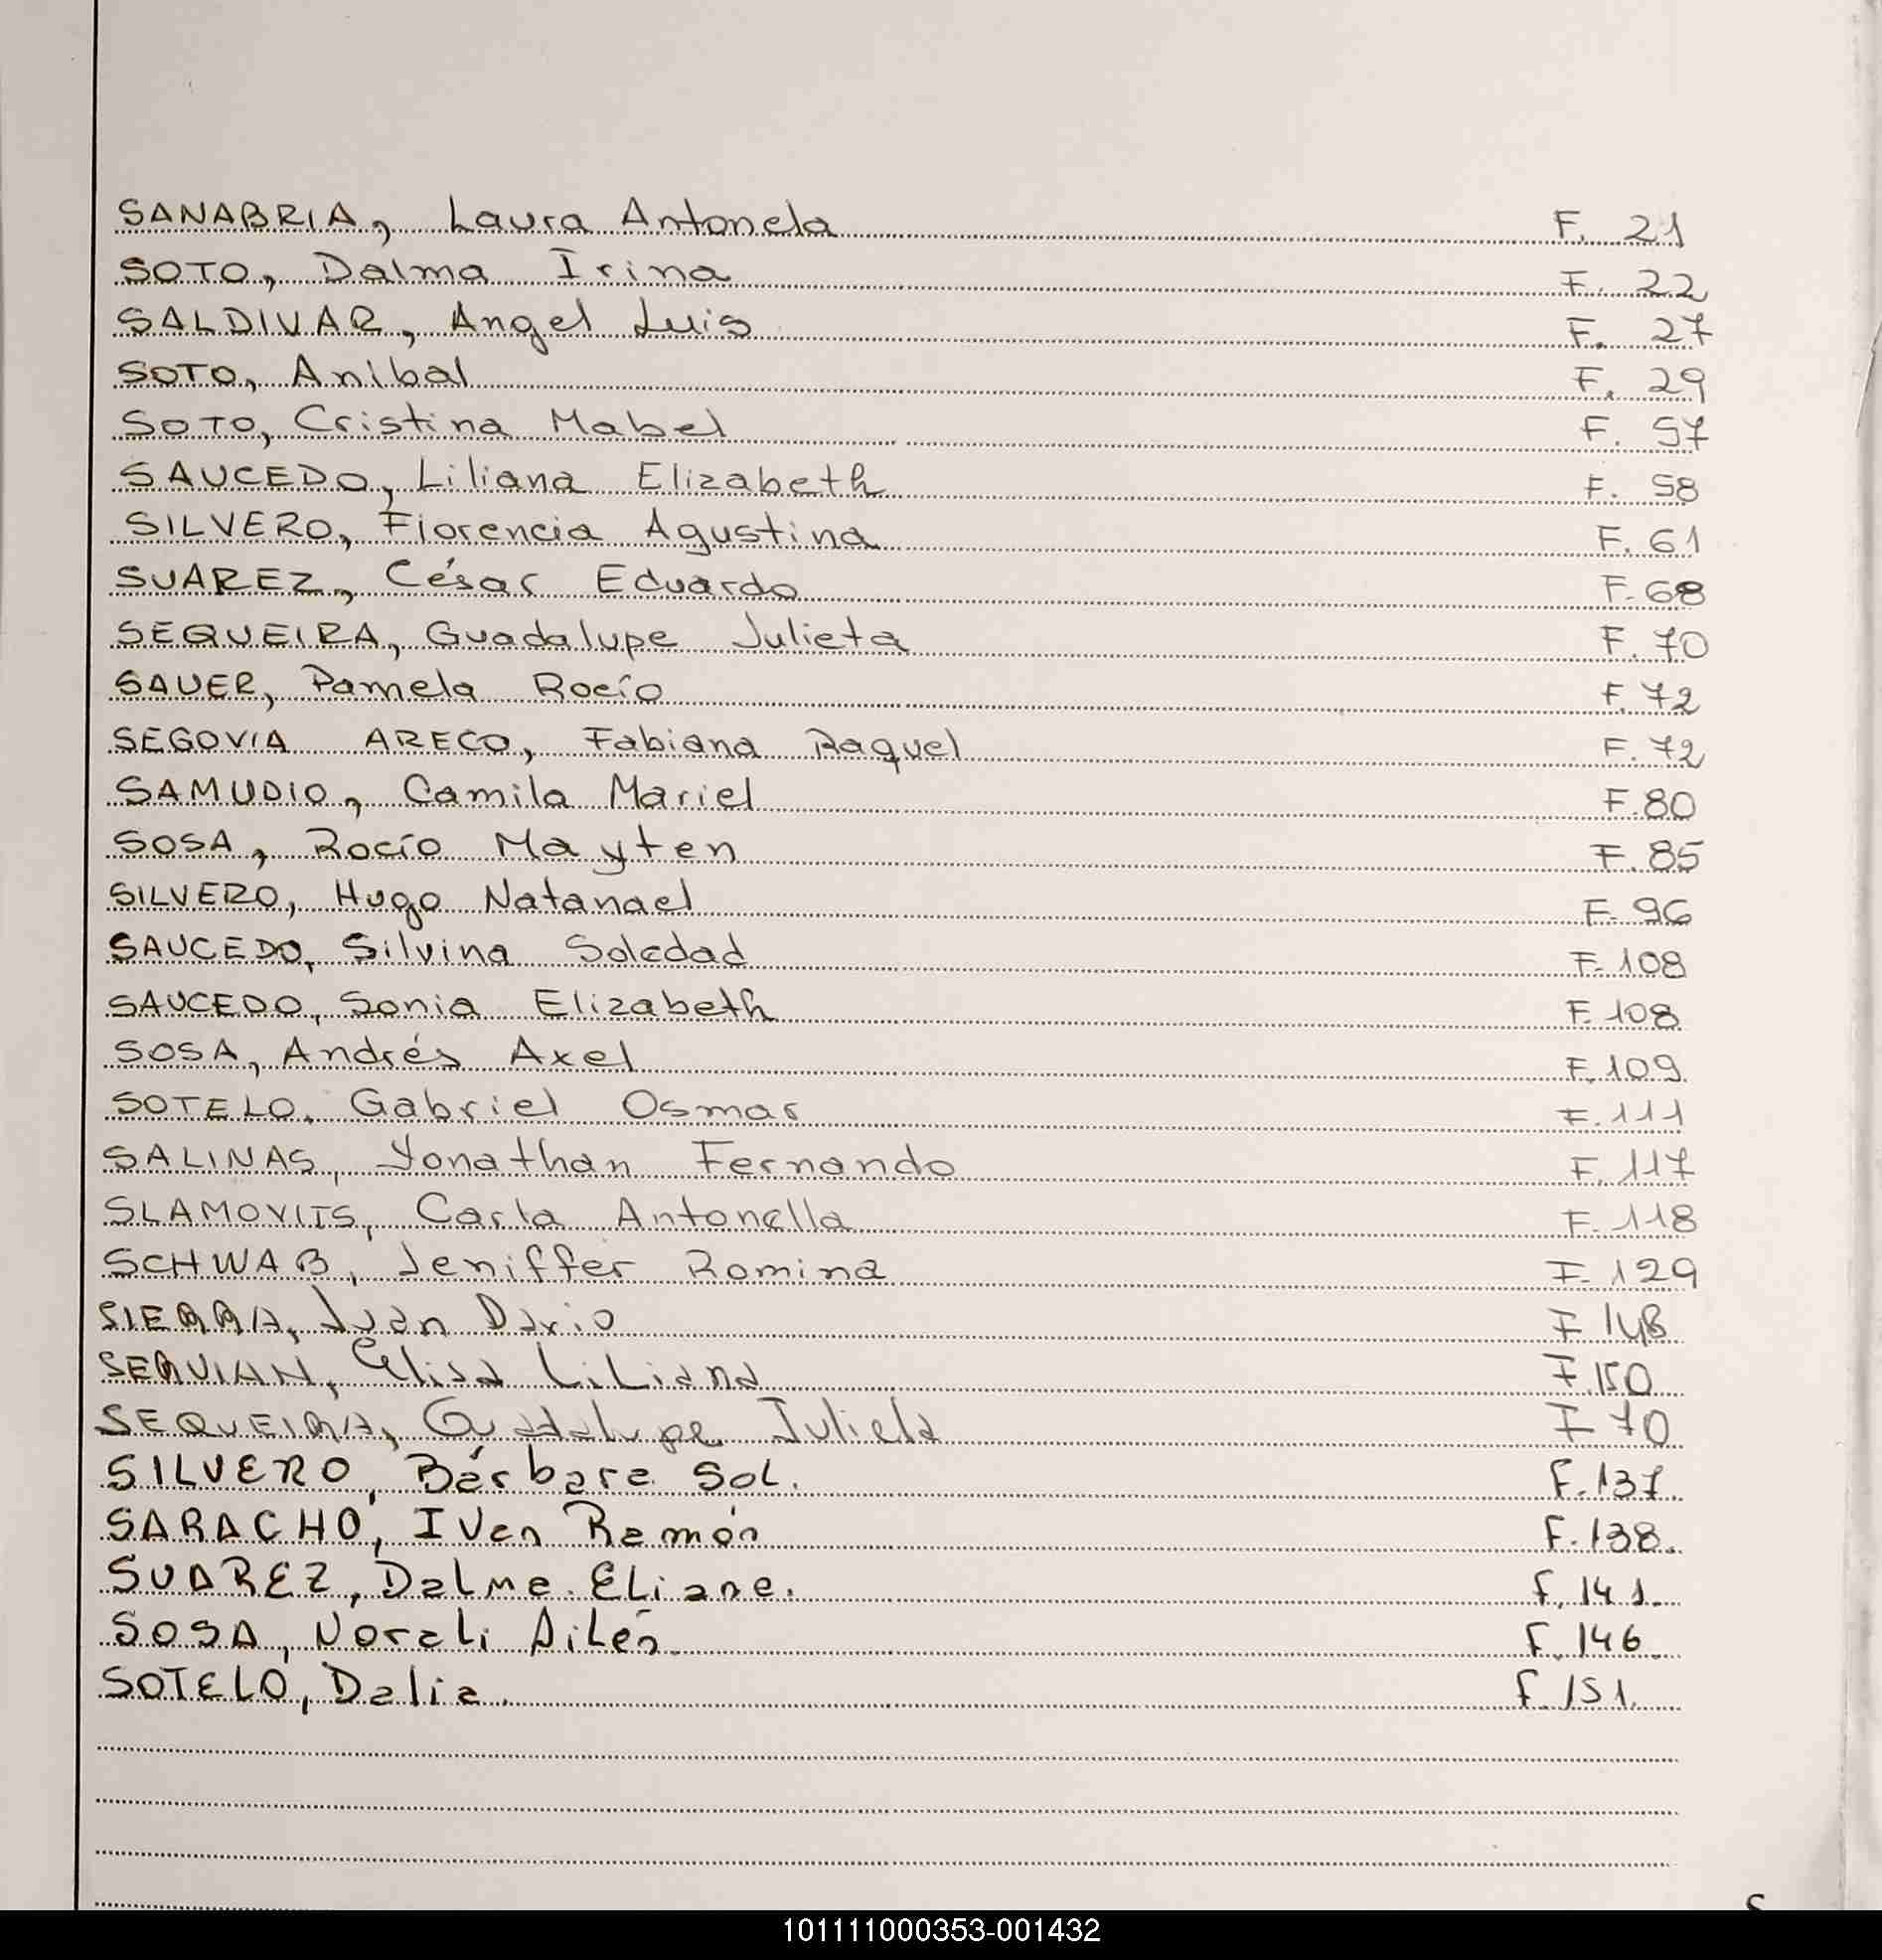 SANABRIA, Laura Antonela F. 21
SOTO, Dalma Irina F. 22
SALDIVAR, Angel Luis F. 27
SOTO, Anibal F. 29
SOTO, Cristina Mabel F. 57
SAUCEDO, Liliana Elizabeth F. 58
SILVERO, Florencia Agustina F. 61
SUAREZ, César Eduardo F. 68
SEQUEIRA, Guadalupe Julieta F. 70
SAUER, Pamela Rocío F. 72
SEGOVIA ARECO, Fabiana Raquel F. 72
SAMUDIO, Camila Mariel F. 80
SOSA, Rocío Mayten F. 85
SILVERO, Hugo Natanael F. 96
SAUCEDO, Silvina Soledad F. 108
SAUCEDO, Sonia Elizabeth F. 108
SOSA, Andrés Axel F. 109
SOTELO, Gabriel Osmar F. 111
SALINAS, Yonathan Fernando F. 117
SLAMOVITS, Carla Antonella F. 118
SCHWAB, Jeniffer Romina F. 129
SIERRA, Juan Dario F 148
SERVIAN, Elisa Liliana F. 150
SEQUEIRA, Guadalupe Julieta F 70
SILVERO, Bárbara Sol. F. 137.
SARACHO, Ivan Ramón F. 138.
SUAREZ, Dalma Eliana. F. 141.
SOSA, Norali Ailén F. 146
SOTELO, Dalia. F. 151.
101111000353-001432